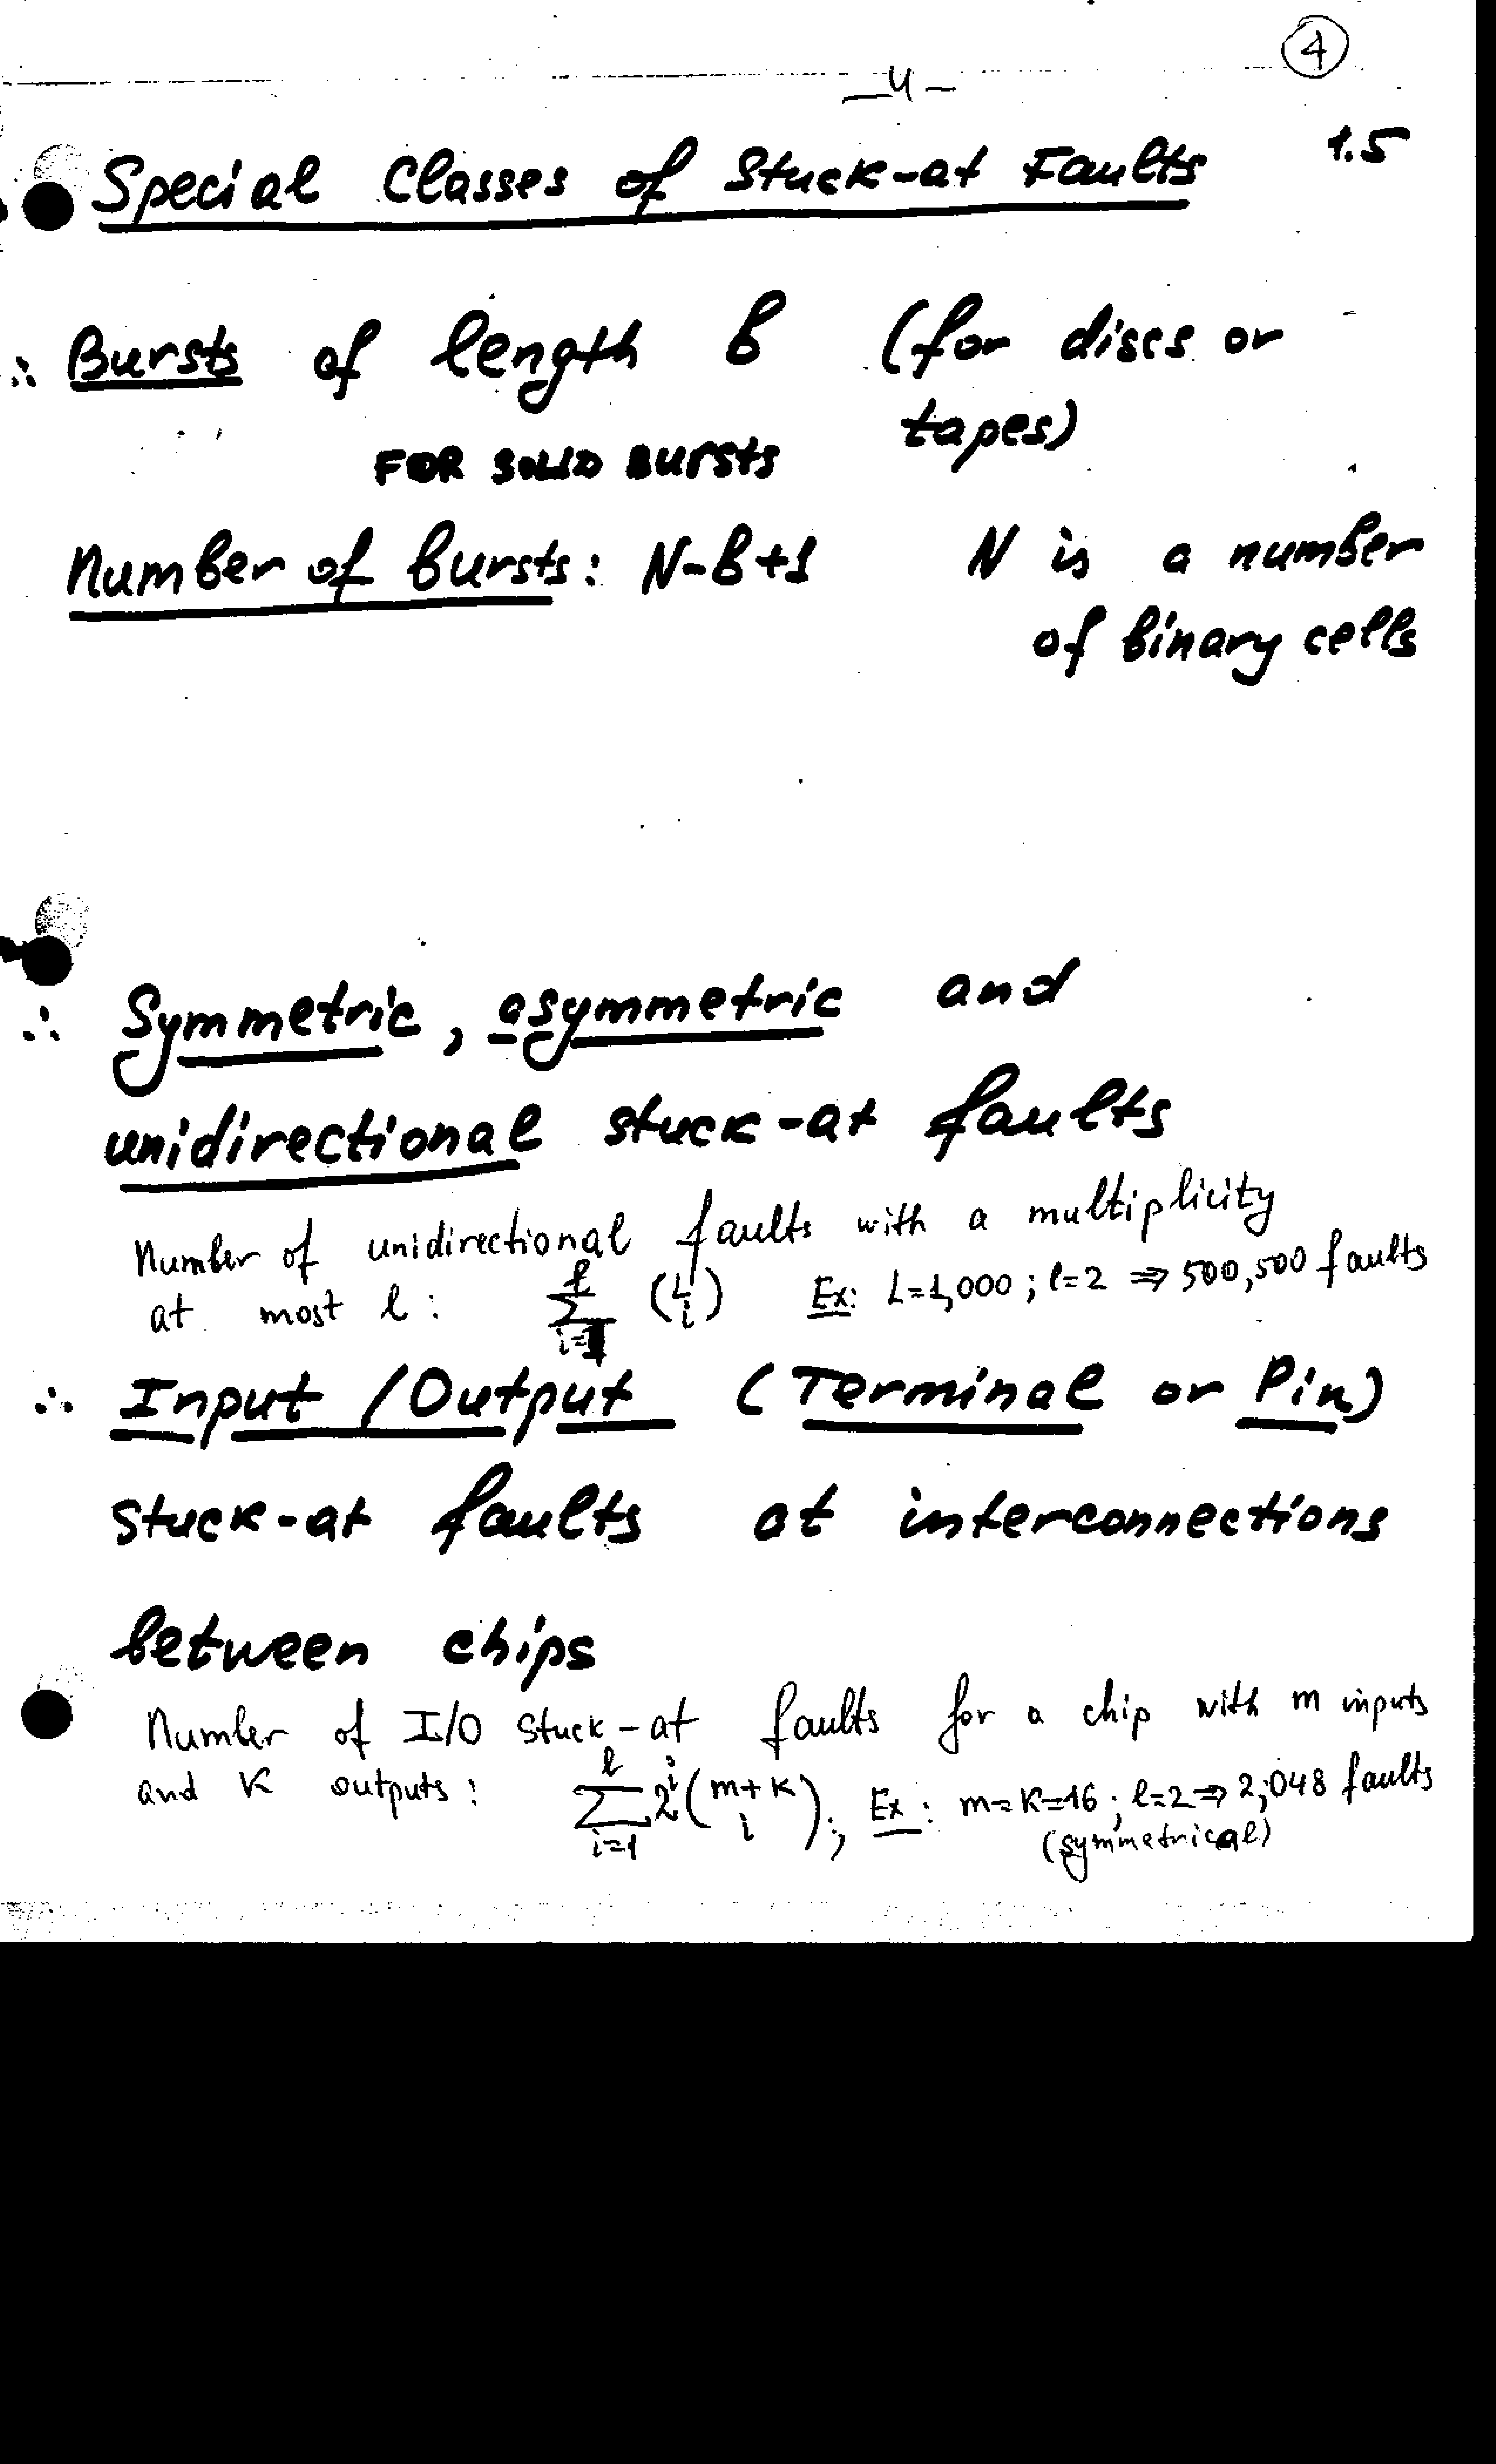 4
-4-
Special Classes of Stuck-at Faults 1.5
∴ Bursts of length b (for discs or
tapes)
FOR SOLID BURSTS
Number of bursts: N-b+1 N is a number
of binary cells
∴ Symmetric, asymmetric and
unidirectional stuck-at faults
Number of unidirectional faults with a multiplicity
at most l: \sum_{i=1}^{l} \binom{L}{i} Ex: L=1,000; l=2 ⇒ 500,500 faults
∴ Input/Output (Terminal or Pin)
stuck-at faults at interconnections
between chips
Number of I/O stuck-at faults for a chip with m inputs
and K outputs: \sum_{i=1}^{l} 2^i \binom{m+K}{i}; Ex: m=K=16; l=2 ⇒ 2,048 faults
(symmetrical)